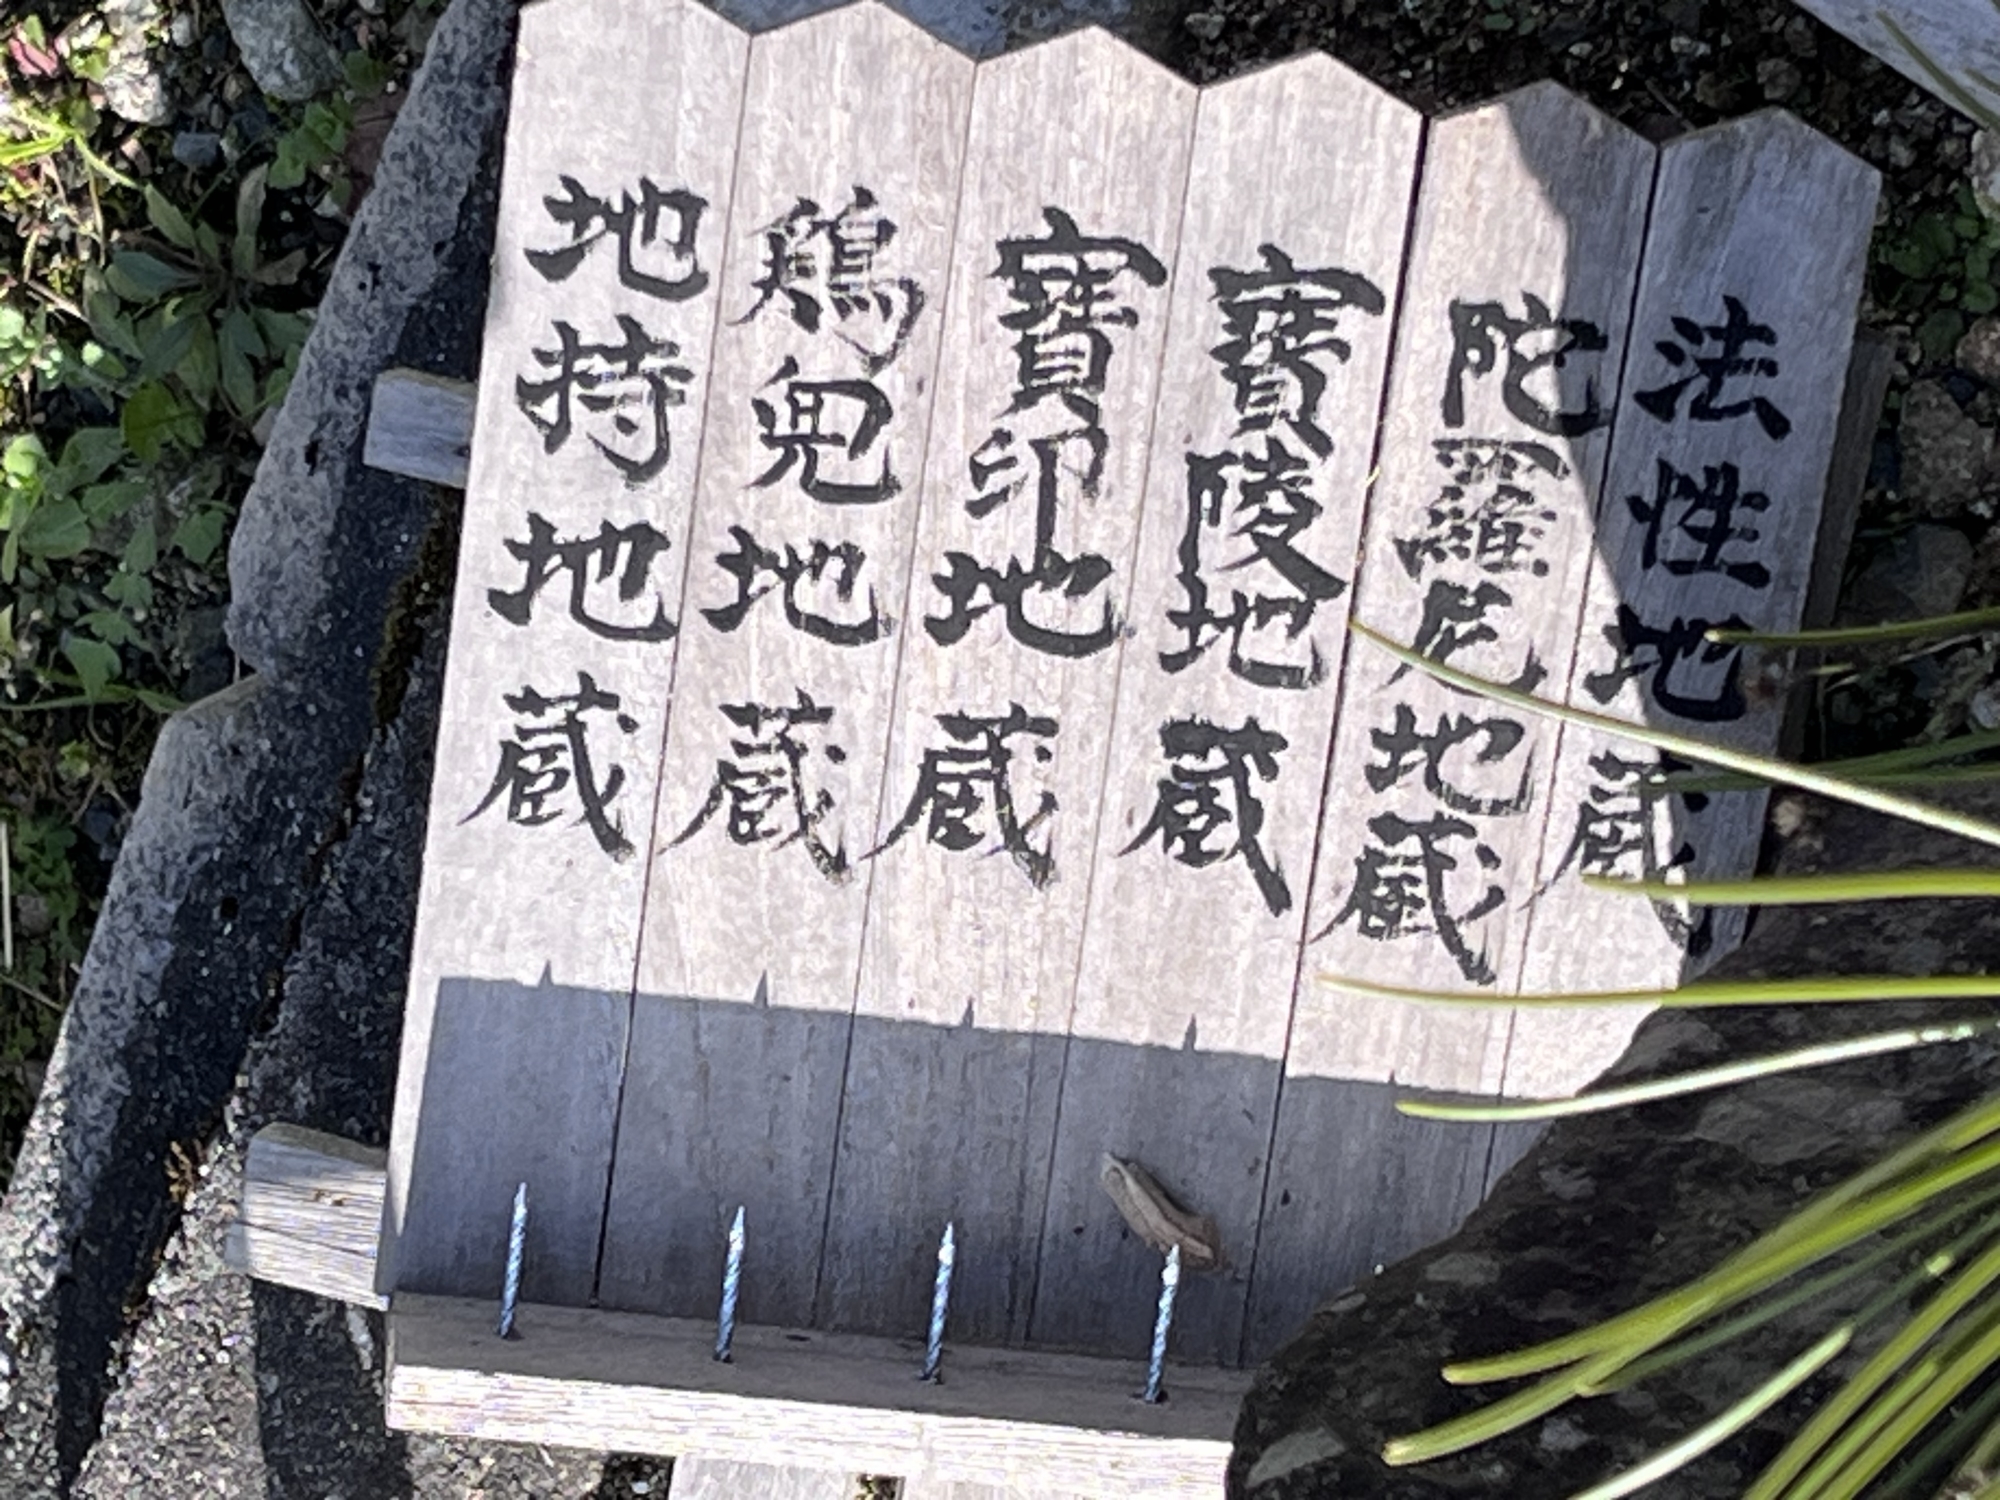 法性地蔵
陀羅尼地蔵
寳陵地蔵
寳印地蔵
鶏兜地蔵
地持地蔵